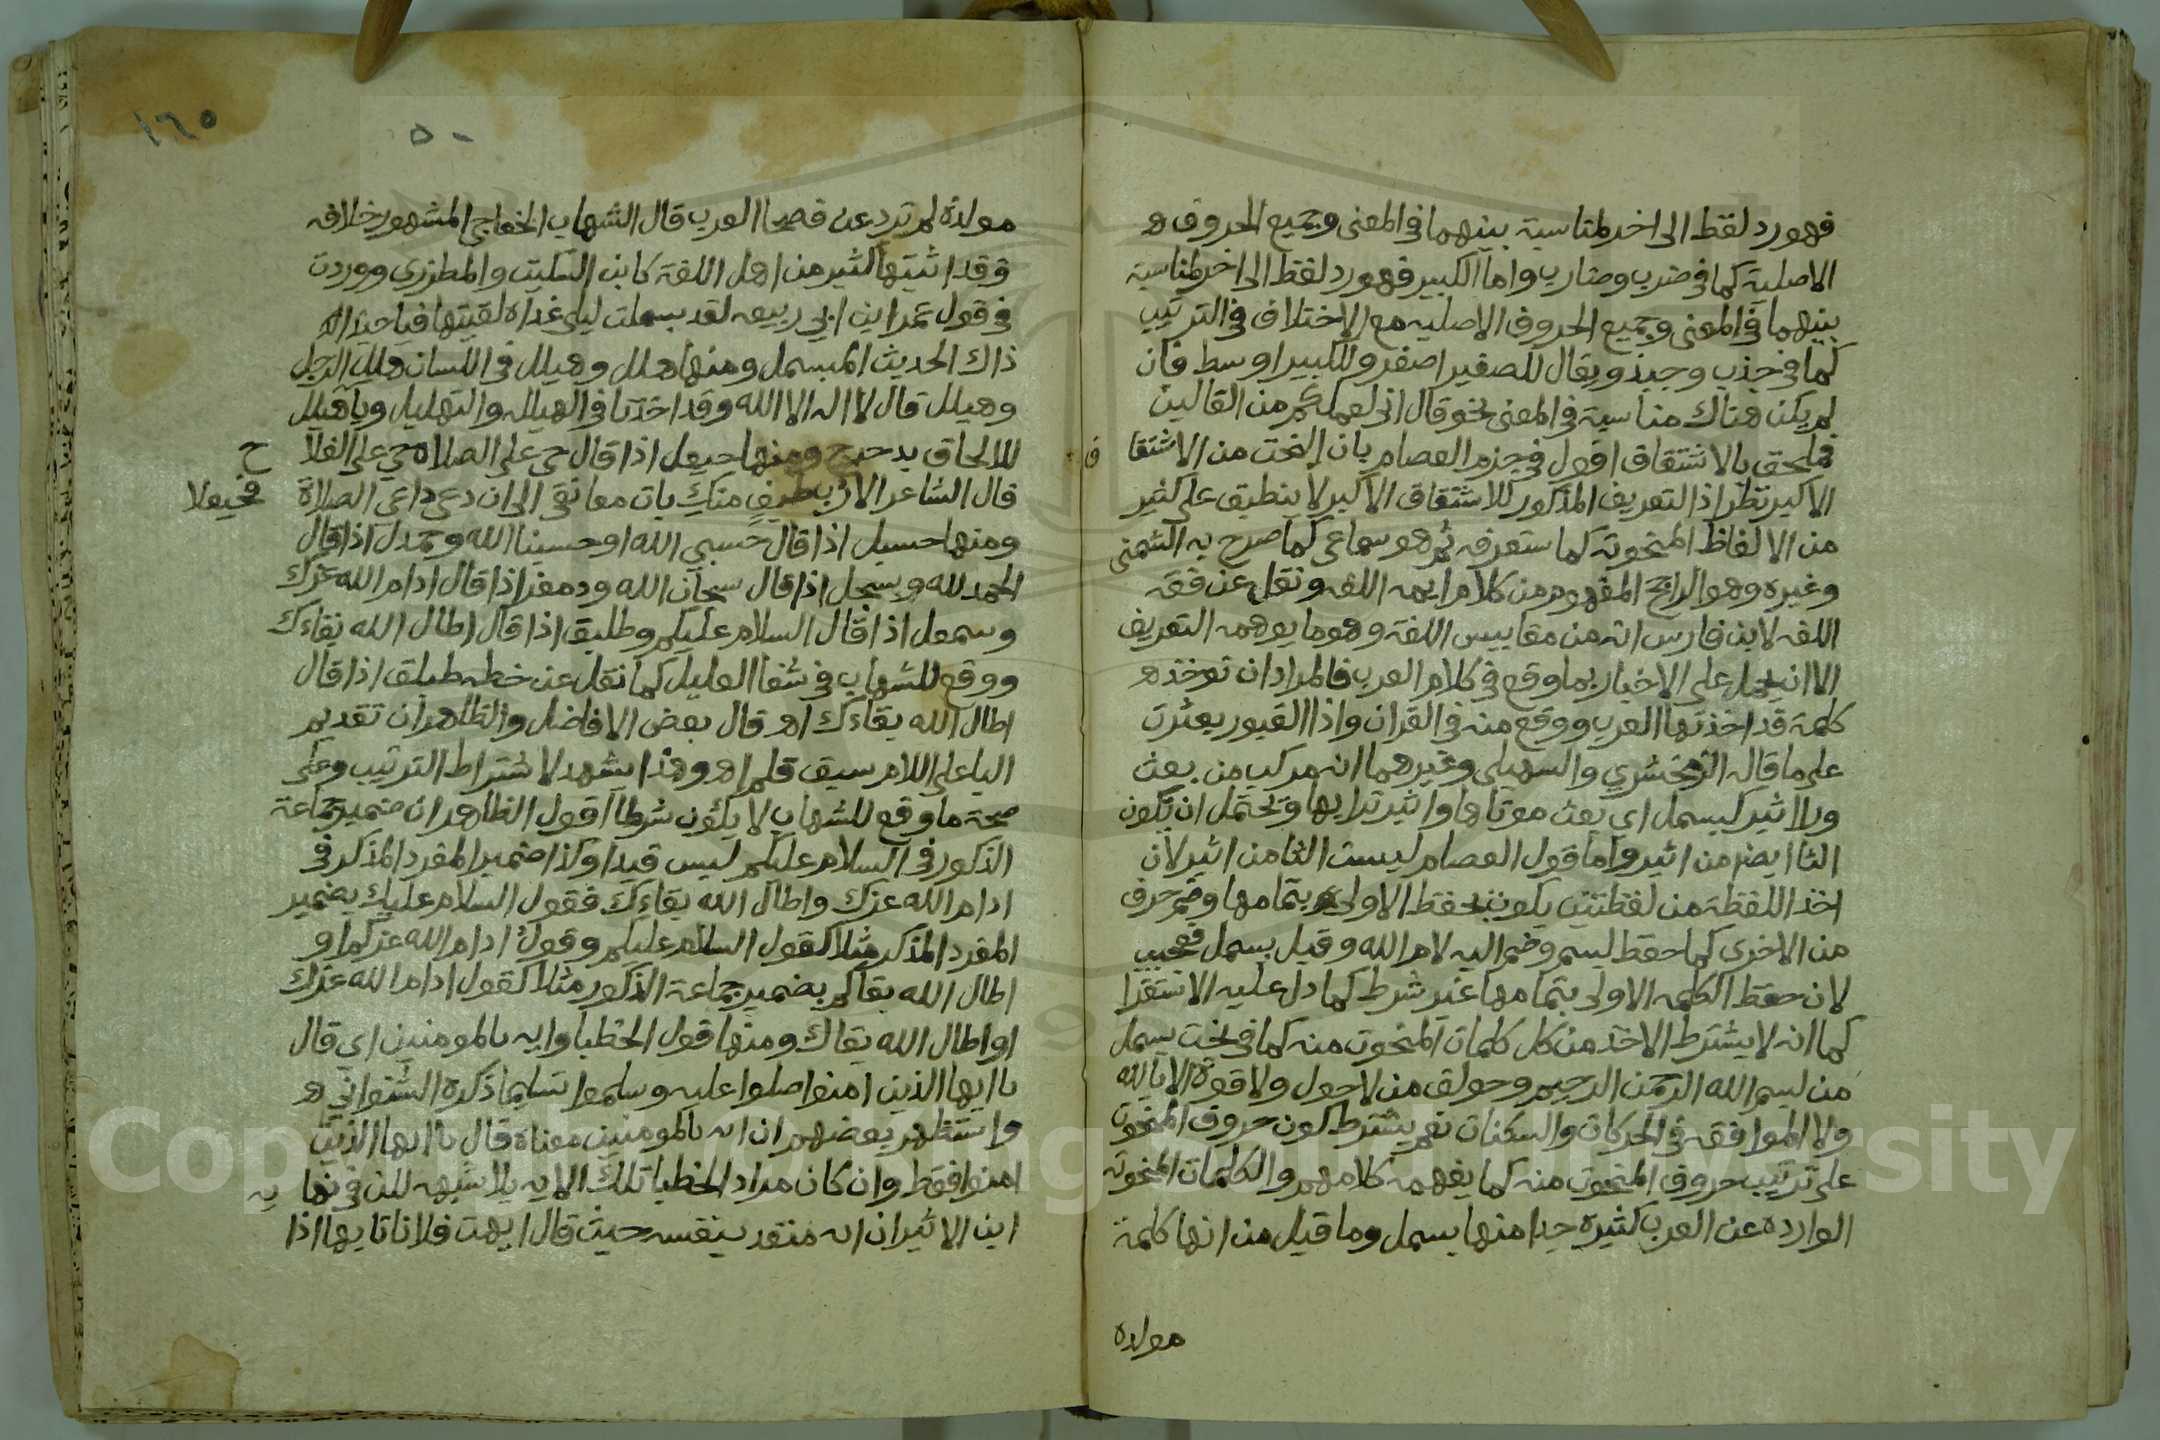 فهو رد لفظ الى اخر لمناسبة بينهما في المعنى وجميع الحروف ه
الاصلية كما في ضرب وضارب واما الكبير فهو رد لفظ الى اخر لمناسبة
بينهما في المعنى وجميع الحروف الاصليه مع الاختلاف في الترتيب
كما في جذب وجبذ ويقال للصغير اصغر وللكبير اوسط فان
لم يكن هناك مناسبة في المعنى نحو قال اني لعملكم من القالين
فملحق بالاشتقاق اقول في جزم العصام بان النحت من الاشتقا ق
الاكبر نظر اذ التعريف المذكور للاشتقاق الاكبر لا ينطبق على كثير
من الالفاظ المنحوته كما ستعرفه ثم هو سماعي كما صرح به الشمني
وغيره وهو الراجح المفهوم من كلام ايمه اللغه ونقل عن فقه
اللغه لابن فارس انه من مقاييس اللغة وهو ما يوهمه التعريف
الا ان يحمل على الاخبار بما وقع في كلام العرب فالمراد ان توخذ ه
كلمة قد اخذتها العرب ووقع منه في القران واذا القبور بعثرت
على ما قاله الزمخشري والسهيلي وغيرهما انه مركب من بعث
ورا اثير كبسمل اي بعث موتاها واثير ترابها ويحتمل ان تكون
الثا ايضا من اثير واما قول العصام ليست الثا من اثير لان
اخذ اللفظة من لفظتين يكون بحفظ الاولى بتمامها وضم حرف
من الاخرى كما حفظ لبسم وضم اليه لام الله وقيل بسمل فعجيب
لان حفظ الكلمه الاولى بتمامها غير شرط كما دل عليه الاستقرا
كما انه لا يشترط الاخذ من كل كلمات المنحوت منه كما في نحت بسمل
من بسم الله الرحمن الرحيم وحولق من لا حول ولا قوة الا بالله
ولا الموافقه في الحركات والسكنات نعم يشترط كون حروف المنحوت
على ترتيب حروف المنحوت منه كما يفهمه كلامهم والكلمات المنحوته
الوارده عن العرب كثيرة جدا منها بسمل وما قيل من انها كلمة
مولده
١٦٥
٥٠
مولدة لم ترد عن فصحا العرب قال الشهاب الخفاجي المشهور خلافه
وقد اثبتها كثير من اهل اللغة كابن السكيت والمطرزي ووردت
في قول عمر ابن ابي ربيعه لقد بسملت ليلى غداه لقيتها فيا حبذا
ذاك الحديث المبسمل ومنها هلل وهيلل في اللسان هلل الرجل
وهيلل قال لا اله الا الله وقد اخذنا في الهيلله والتهليل ويا هيلل
للالحاق بدحرج ومنها حيعل اذا قال حي على الصلاه حي على الفلا ح
قال الشاعر الا رب طيف منك بات معانقي الى ان دعى داعي الصلاة فحيعلا
ومنها حسبل اذا قال حسبي الله او حسبنا الله وحمدل اذا قال
الحمد لله وسبحل اذا قال سبحان الله ودمعز اذا قال ادام الله عزك
وسمعل اذا قال السلام عليكم وطلبق اذا قال اطال الله بقاءك
ووقع للشهاب في شفا العليل كما نقل عن خطه طبلق اذا قال
اطال الله بقاءك اه قال بعض الافاضل والظاهر ان تقديم
البا على اللام سبق قلم اه وهذا يشهد لاشتراط الترتيب وعلى
صحة ما وقع للشهاب لا يكون شرطا اقول الظاهر ان ضمير جماعة
الذكور في السلام عليكم ليس قيدا وكذا ضمير المفرد المذكر في
ادام الله عزك واطال الله بقاءك فقول السلام عليك بضمير
المفرد المذكر مثلا كقول السلام عليكم وقول ادام الله عزكم او
اطال الله بقاكم بضمير جماعة الذكور مثلا كقول ادام الله عزك
او اطال الله بقاك ومنها قول الخطبا وايه بالمومنين اي قال
يا ايها الذين امنوا صلوا عليه وسلموا تسليما ذكره الشنواني ه
واستظهر بعضهم ان ايه بالمومنين معناه قال يا ايها الذين
امنوا فقط وان كان مراد الخطبا تلك الايه بلا شبهه لكن في نها يه
ابن الاثير ان ايه متعد بنفسه حيث قال ايهت فلانا تايها اذا